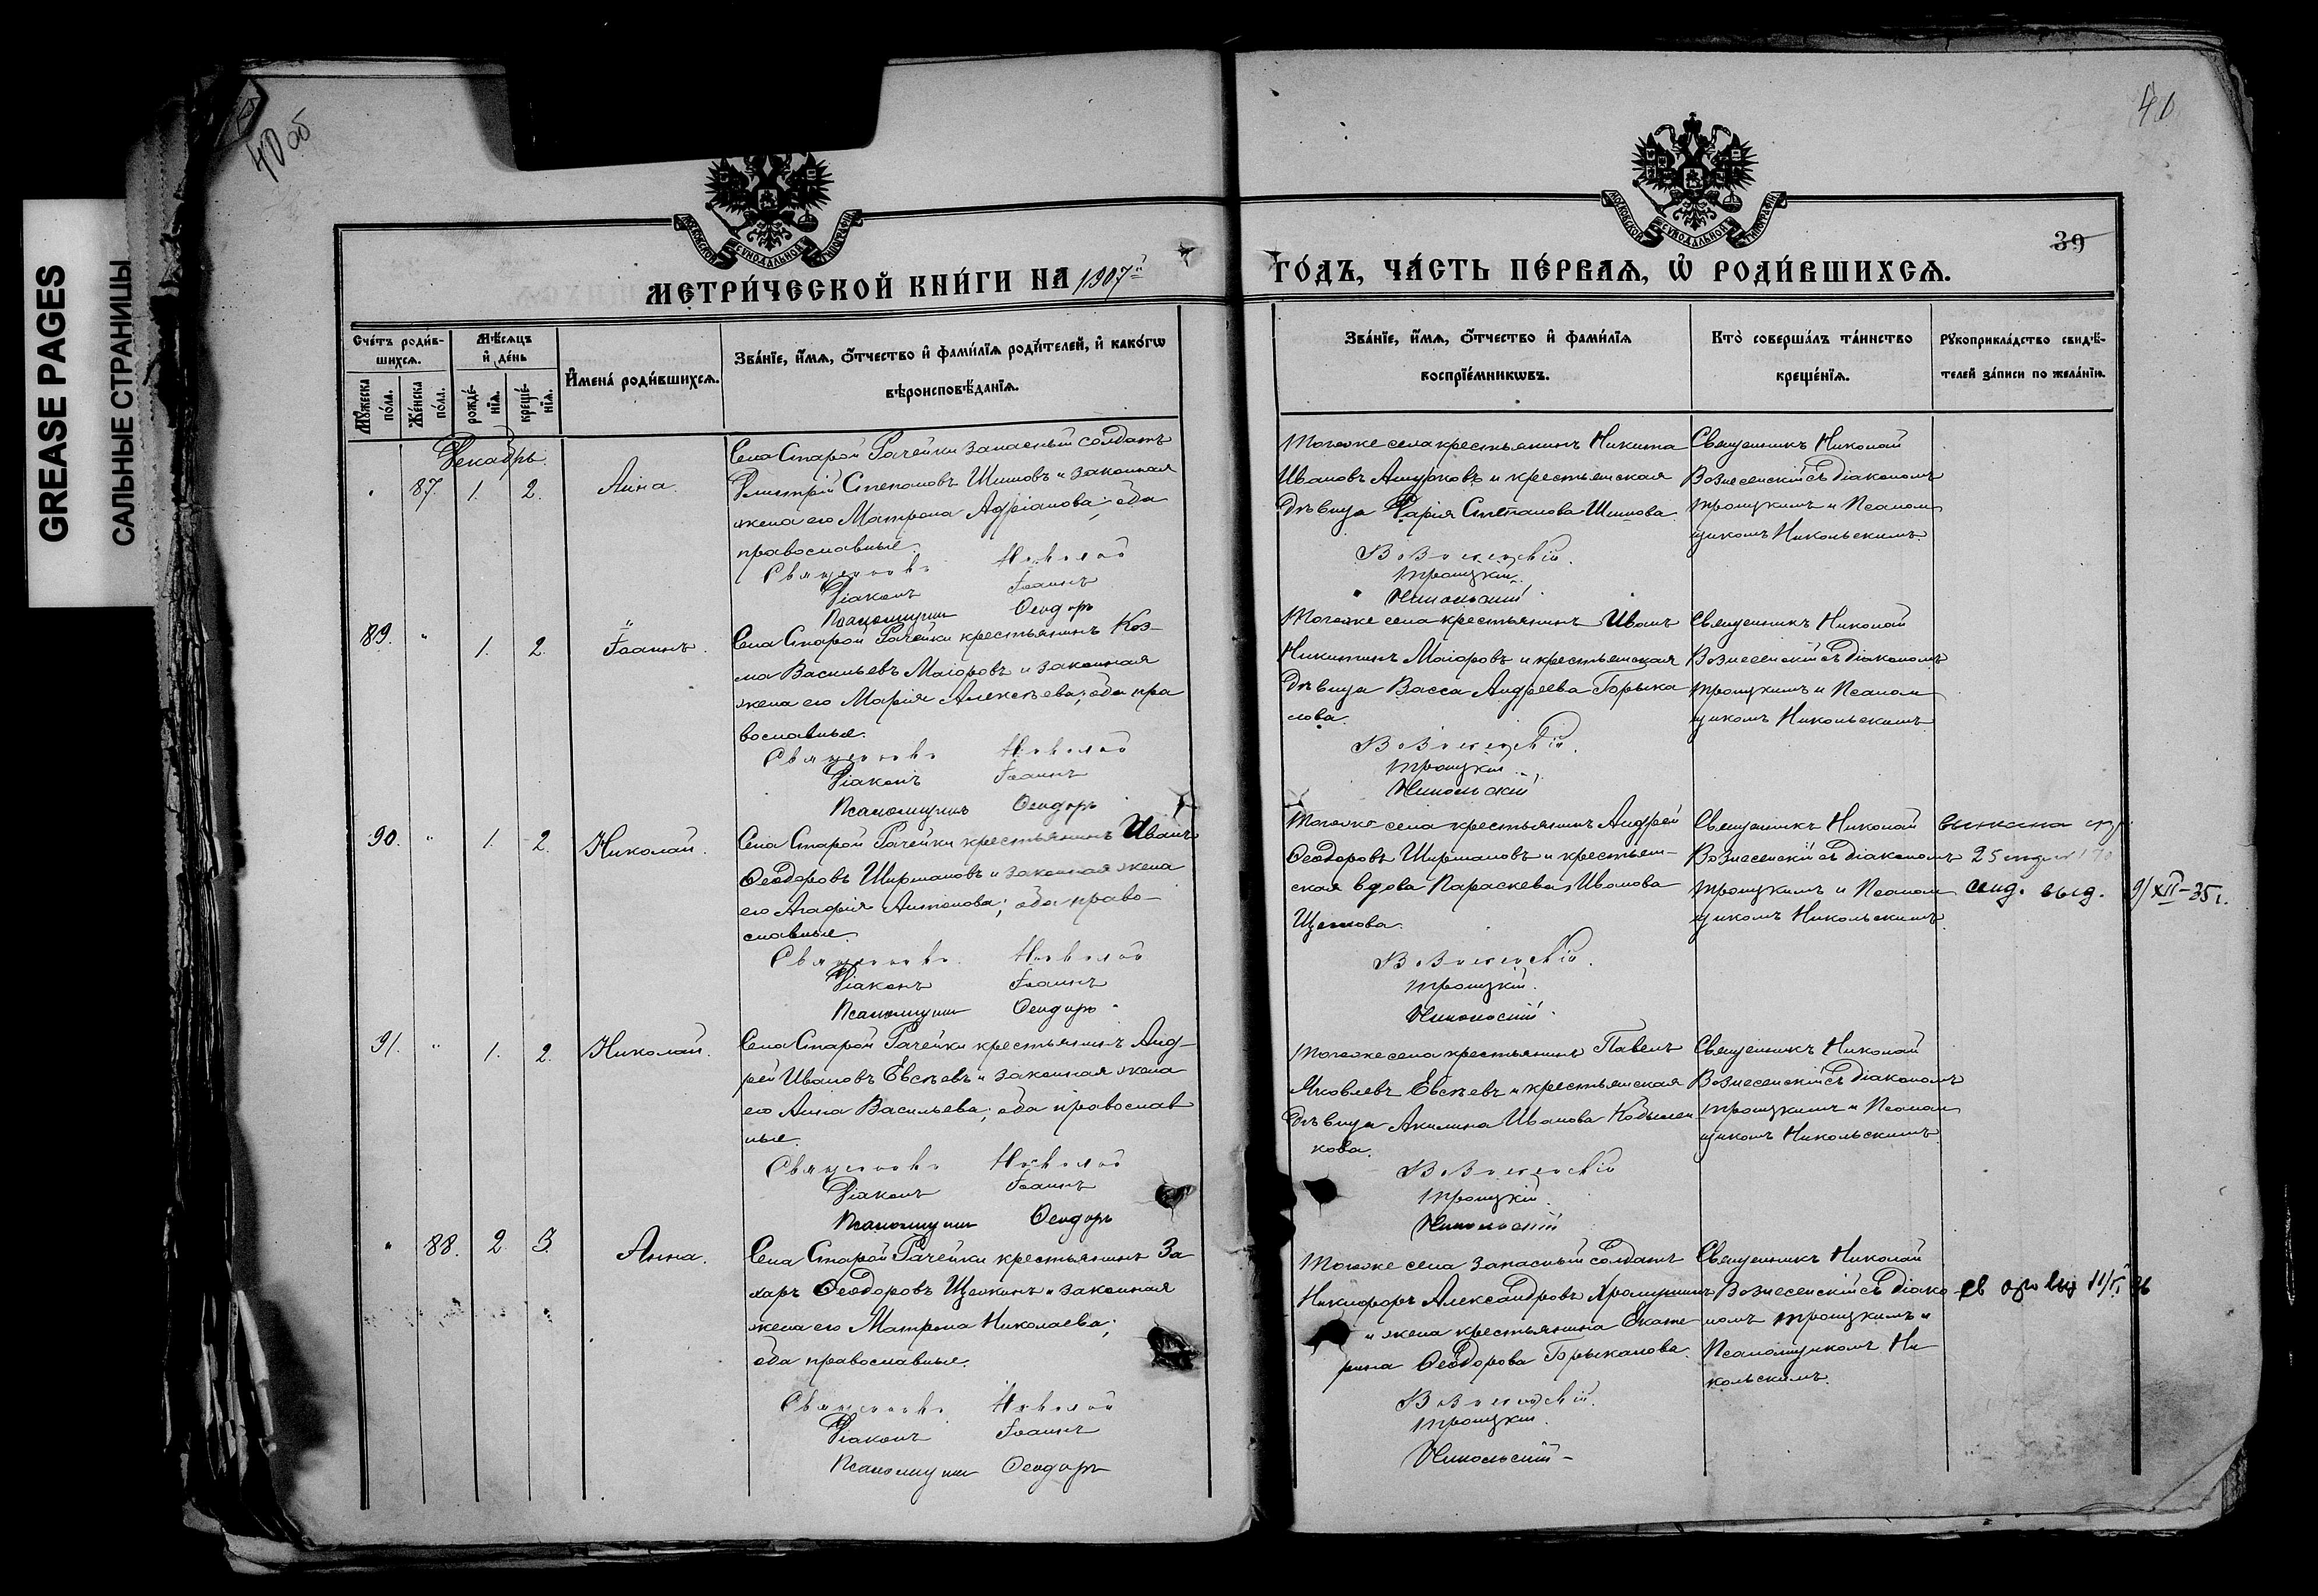 GREASE PAGES
САЛЬНЫЕ СТРАНИЦЫ
40 об
40
39
МОСКОВСКОЙ СѴНОДАЛЬНОЙ ТИПОГРАФІИ
МОСКОВСКОЙ СѴНОДАЛЬНОЙ ТИПОГРАФІИ
МЕТРИ́ЧЕСКОЙ КНИ́ГИ НА 1907й
ГО́ДЪ, ЧА́СТЬ ПЕ́РВАѦ, Ѡ҆ РОДИ́ВШИХСѦ.
Сче́тъ роди́в-
шихсѧ.
Мꙋ́жеска по́ла.
Же́нска по́ла.
Мѣ́сѧцъ
и҆ де́нь
рожде́-
нїѧ.
креще́-
нїѧ.
И҆мена̀ роди́вшихсѧ.
Зва́нїе, и҆́мѧ, ѻ҆́тчество и҆ фами́лїѧ роди́телей, и҆ како́гѡ
вѣроисповѣ́данїѧ.
Зва́нїе, и҆́мѧ, ѻ҆́тчество и҆ фами́лїѧ
воспрїе́мникѡвъ.
Кто̀ соверша́лъ та́инство
креще́нїѧ.
Рꙋкоприкла́дство свидѣ́-
телей за́писи по жела́нїю.
Декабрь.
" 87. 1. 2. Анна.
Села Старой Рачейки запасный солдатъ
Димитрій Степановъ Шишовъ и законная
жена его Матрона Адріанова; оба
православные.
Священникъ Николай
Діаконъ Іоаннъ
Псаломщикъ Ѳеодоръ
Тогоже села крестьянинъ Никита
Ивановъ и крестьянская
дѣвица Дарія Степанова Шишова.
Вознесенскій.
Троицкій.
Никольскій.
Священникъ Николай
Вознесенскій съ діакономъ
Троицкимъ и Псалом
щикомъ Никольскимъ.
89. " 1. 2. Іоаннъ.
Села Старой Рачейки крестьянинъ Коз-
ма Васильевъ Маіоровъ и законная
жена его Марія Алексѣева; оба пра
вославные.
Священникъ Николай
Діаконъ Іоаннъ
Псаломщикъ Ѳеодоръ
Тогоже села крестьянинъ Иванъ
Никитинъ Маіоровъ и крестьянская
дѣвица Васса Андреева Брыка
лова.
Вознесенскій.
Троицкій.
Никольскій
Священникъ Николай
Вознесенскій съ діакономъ
Троицкимъ и Псалом
щикомъ Никольскимъ
90. " 1. 2. Николай.
Села Старой Рачейки крестьянинъ Иванъ
Ѳеодоровъ Ширмановъ и законная жена
его Агафія Антонова; оба право-
славные.
Священникъ Николай
Діаконъ Іоаннъ
Псаломщикъ Ѳеодоръ
Тогоже села крестьянинъ Андрей
Ѳеодоровъ Ширмановъ и крестьян-
ская вдова Параскева Иванова
Вознесенскій.
Троицкій.
Никольскій.
Священникъ Николай
Вознесенскій съ діакономъ
Троицкимъ и Псалом
щикомъ Никольскимъ.
25
выд. 9/XII-35 г.
91. " 1. 2. Николай.
Села Старой Рачейки крестьянинъ Анд-
рей Ивановъ Евсѣевъ и законная жена
его Анна Васильева; оба православ
ные.
Священникъ Николай
Діаконъ Іоаннъ
Псаломщикъ Ѳеодоръ
Тогоже села крестьянинъ Павелъ
Яковлевъ Евсѣевъ и крестьянская
дѣвица Акилина Иванова Кобылен
кова.
Вознесенскій
Троицкій.
Никольскій
Священникъ Николай
Вознесенскій съ діакономъ
Троицкимъ и Псалом
щикомъ Никольскимъ
" 88. 2. 3. Анна.
Села Старой Рачейки крестьянинъ За
харъ Ѳеодоровъ Щелкинъ и законная
жена его Матрона Николаева;
оба православные.
Священникъ Николай
Діаконъ Іоаннъ
Псаломщикъ Ѳеодоръ
Тогоже села запасный солдатъ
Никифоръ Александровъ
и жена крестьянина Екате
рина Ѳеодорова Брыкалова.
Вознесенскій.
Троицкій.
Никольскій
Священникъ Николай
Вознесенскій съ діако
номъ Троицкимъ и
Псаломщикомъ Ни
кольскимъ.